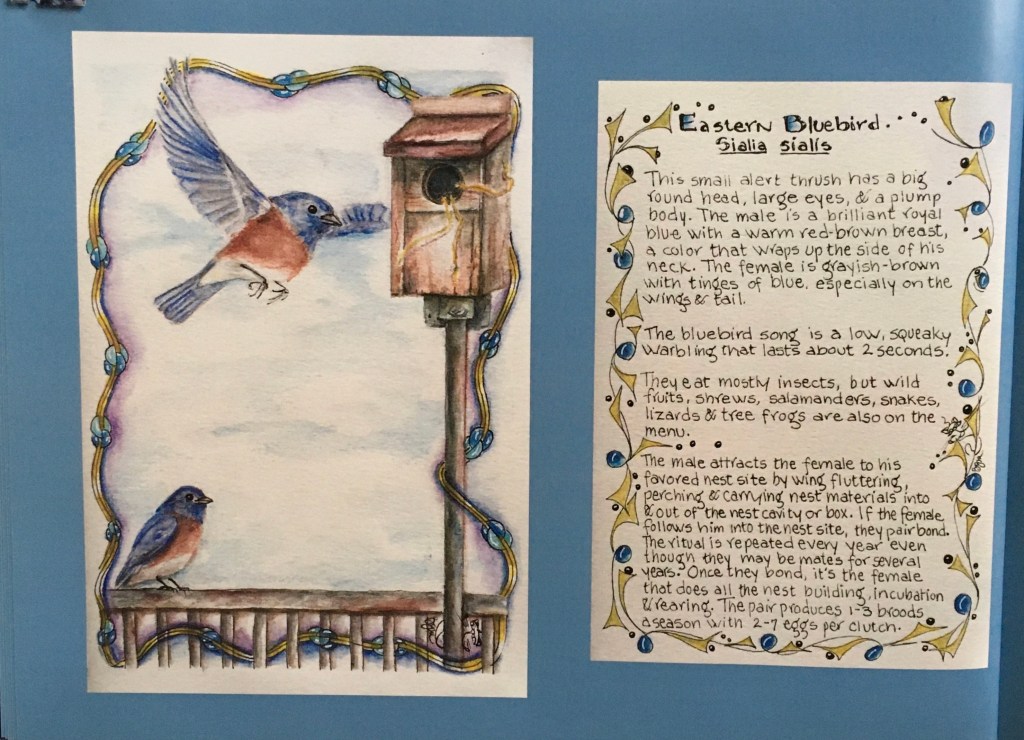 Eastern Bluebird...
Sialia sialis
This small alert thrush has a big
round head, large eyes, & a plump
body. The male is a brilliant royal
blue with a warm red-brown breast,
a color that wraps up the side of his
neck. The female is grayish-brown
with tinges of blue, especially on the
wings & tail.
The bluebird song is a low, squeaky
warbling that lasts about 2 seconds.
They eat mostly insects, but wild
fruits, shrews, salamanders, snakes,
lizards & tree frogs are also on the
menu.
The male attracts the female to his
favored nest site by wing fluttering,
perching & carrying nest materials into
& out of the nest cavity or box. If the female
follows him into the nest site, they pair bond.
The ritual is repeated every year even
though they may be mates for several
years. Once they bond, it's the female
that does all the nest building, incubation
& rearing. The pair produces 1-3 broods
a season with 2-7 eggs per clutch.